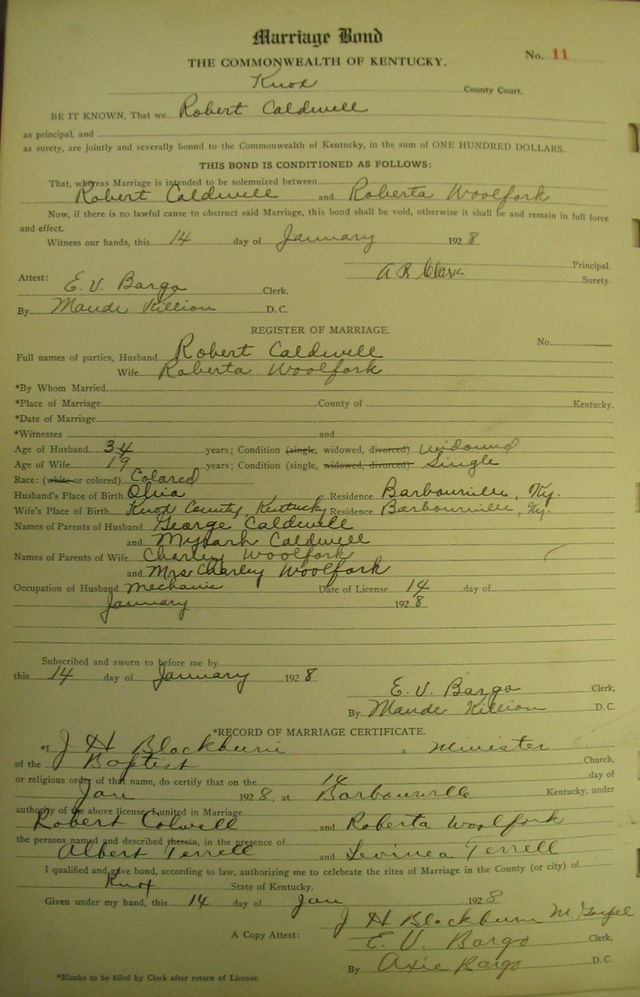 Marriage Bond
No. 11
THE COMMONWEALTH OF KENTUCKY.
Knox County Court.
BE IT KNOWN, That we Robert Caldwell
as principal, and
as surety, are jointly and severally bound to the Commonwealth of Kentucky, in the sum of ONE HUNDRED DOLLARS.
THIS BOND IS CONDITIONED AS FOLLOWS:
That, whereas Marriage is intended to be solemnized between
Robert Caldwell and Roberta Woolfork
Now, if there is no lawful cause to obstruct said Marriage, this bond shall be void, otherwise it shall be and remain in full force
and effect.
Witness our hands, this 14 day of January 1928
Principal.
A R Clark Surety.
Attest: E. V. Bargo Clerk.
By Maude Killion D.C.
REGISTER OF MARRIAGE.
No.
Full names of parties, Husband Robert Caldwell
Wife Roberta Woolfork
*By Whom Married
*Place of Marriage County of Kentucky.
*Date of Marriage
*Witnesses and
Age of Husband 34 years; Condition (single, widowed, divorced) widowed
Age of Wife 19 years; Condition (single, widowed, divorced) Single
Race: (white or colored) Colored
Husband's Place of Birth Ohio Residence Barbourville, Ky.
Wife's Place of Birth Knox County, Kentucky Residence Barbourville, Ky.
Names of Parents of Husband George Caldwell
and Caldwell
Names of Parents of Wife Charley Woolfork
and Mrs Charley Woolfork
Occupation of Husband Mechanic Date of License 14 day of
January 1928
Subscribed and sworn to before me by
this 14 day of January 1928
E. V. Bargo Clerk,
By Maude Killion D.C.
*RECORD OF MARRIAGE CERTIFICATE.
*I J H Blackburn, a Minister
of the Baptist Church,
or religious order of that name, do certify that on the 14 day of
Jan 1928, at Barbourville Kentucky, under
authority of the above license, I united in Marriage
Robert Colwell and Roberta Woolfork
the persons named and described therein, in the presence of
Albert Terrell and Levinea Terrell
I qualified and gave bond, according to law, authorizing me to celebrate the rites of Marriage in the County (or city) of
Knox State of Kentucky.
Given under my hand, this 14 day of Jan 1928
J H Blackburn M. Gospel
A Copy Attest: E. V. Bargo Clerk,
By Axie Bargo D.C.
*Blanks to be filled by Clerk after return of License.